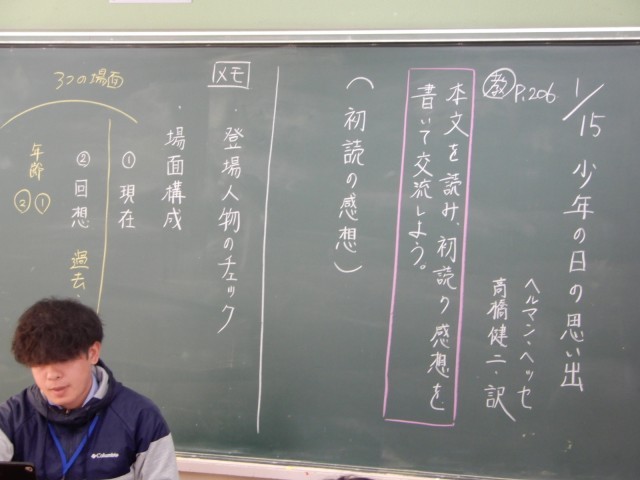 1/15 少年の日の思い出
ヘルマン・ヘッセ
高橋健二・訳
教 P.206
本文を読み、初読の感想を
書いて交流しよう。
(初読の感想)
メモ
・登場人物のチェック
・場面構成
① 現在
② 回想 過去
3つの場面
年齢
①
②
Columbia